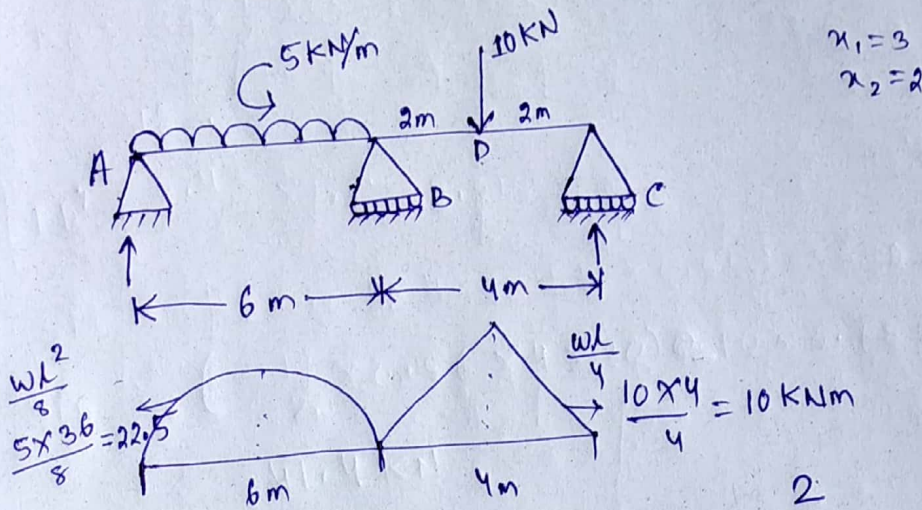 5KN/m
10KN
x₁ = 3
x₂ = 2
2m
2m
A
D
B
C
6m
4m
wl²/8
5×36/8 = 22.5
wl/4
10×4/4 = 10 KNm
6m
4m
2